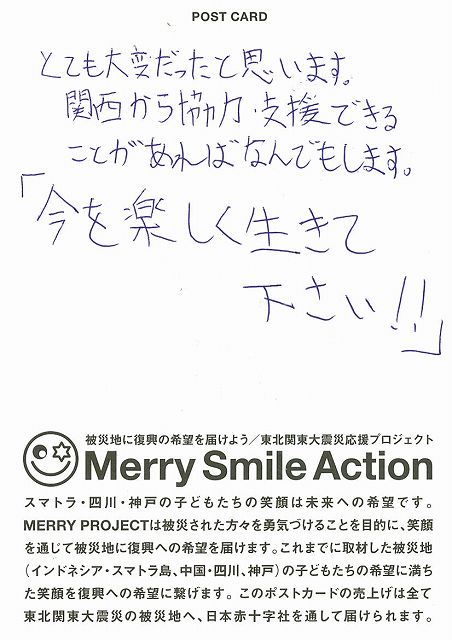 POST CARD
とても大変だったと思います。
関西から協力・支援できる
ことがあればなんでもします。
「今を楽しく生きて
下さい!!」
被災地に復興の希望を届けよう/東北関東大震災応援プロジェクト
Merry Smile Action
スマトラ・四川・神戸の子どもたちの笑顔は未来への希望です。
MERRY PROJECTは被災された方々を勇気づけることを目的に、笑顔
を通じて被災地に復興への希望を届けます。これまでに取材した被災地
(インドネシア・スマトラ島、中国・四川、神戸)の子どもたちの希望に満ち
た笑顔を復興への希望に繋げます。このポストカードの売上げは全て
東北関東大震災の被災地へ、日本赤十字社を通して届けられます。